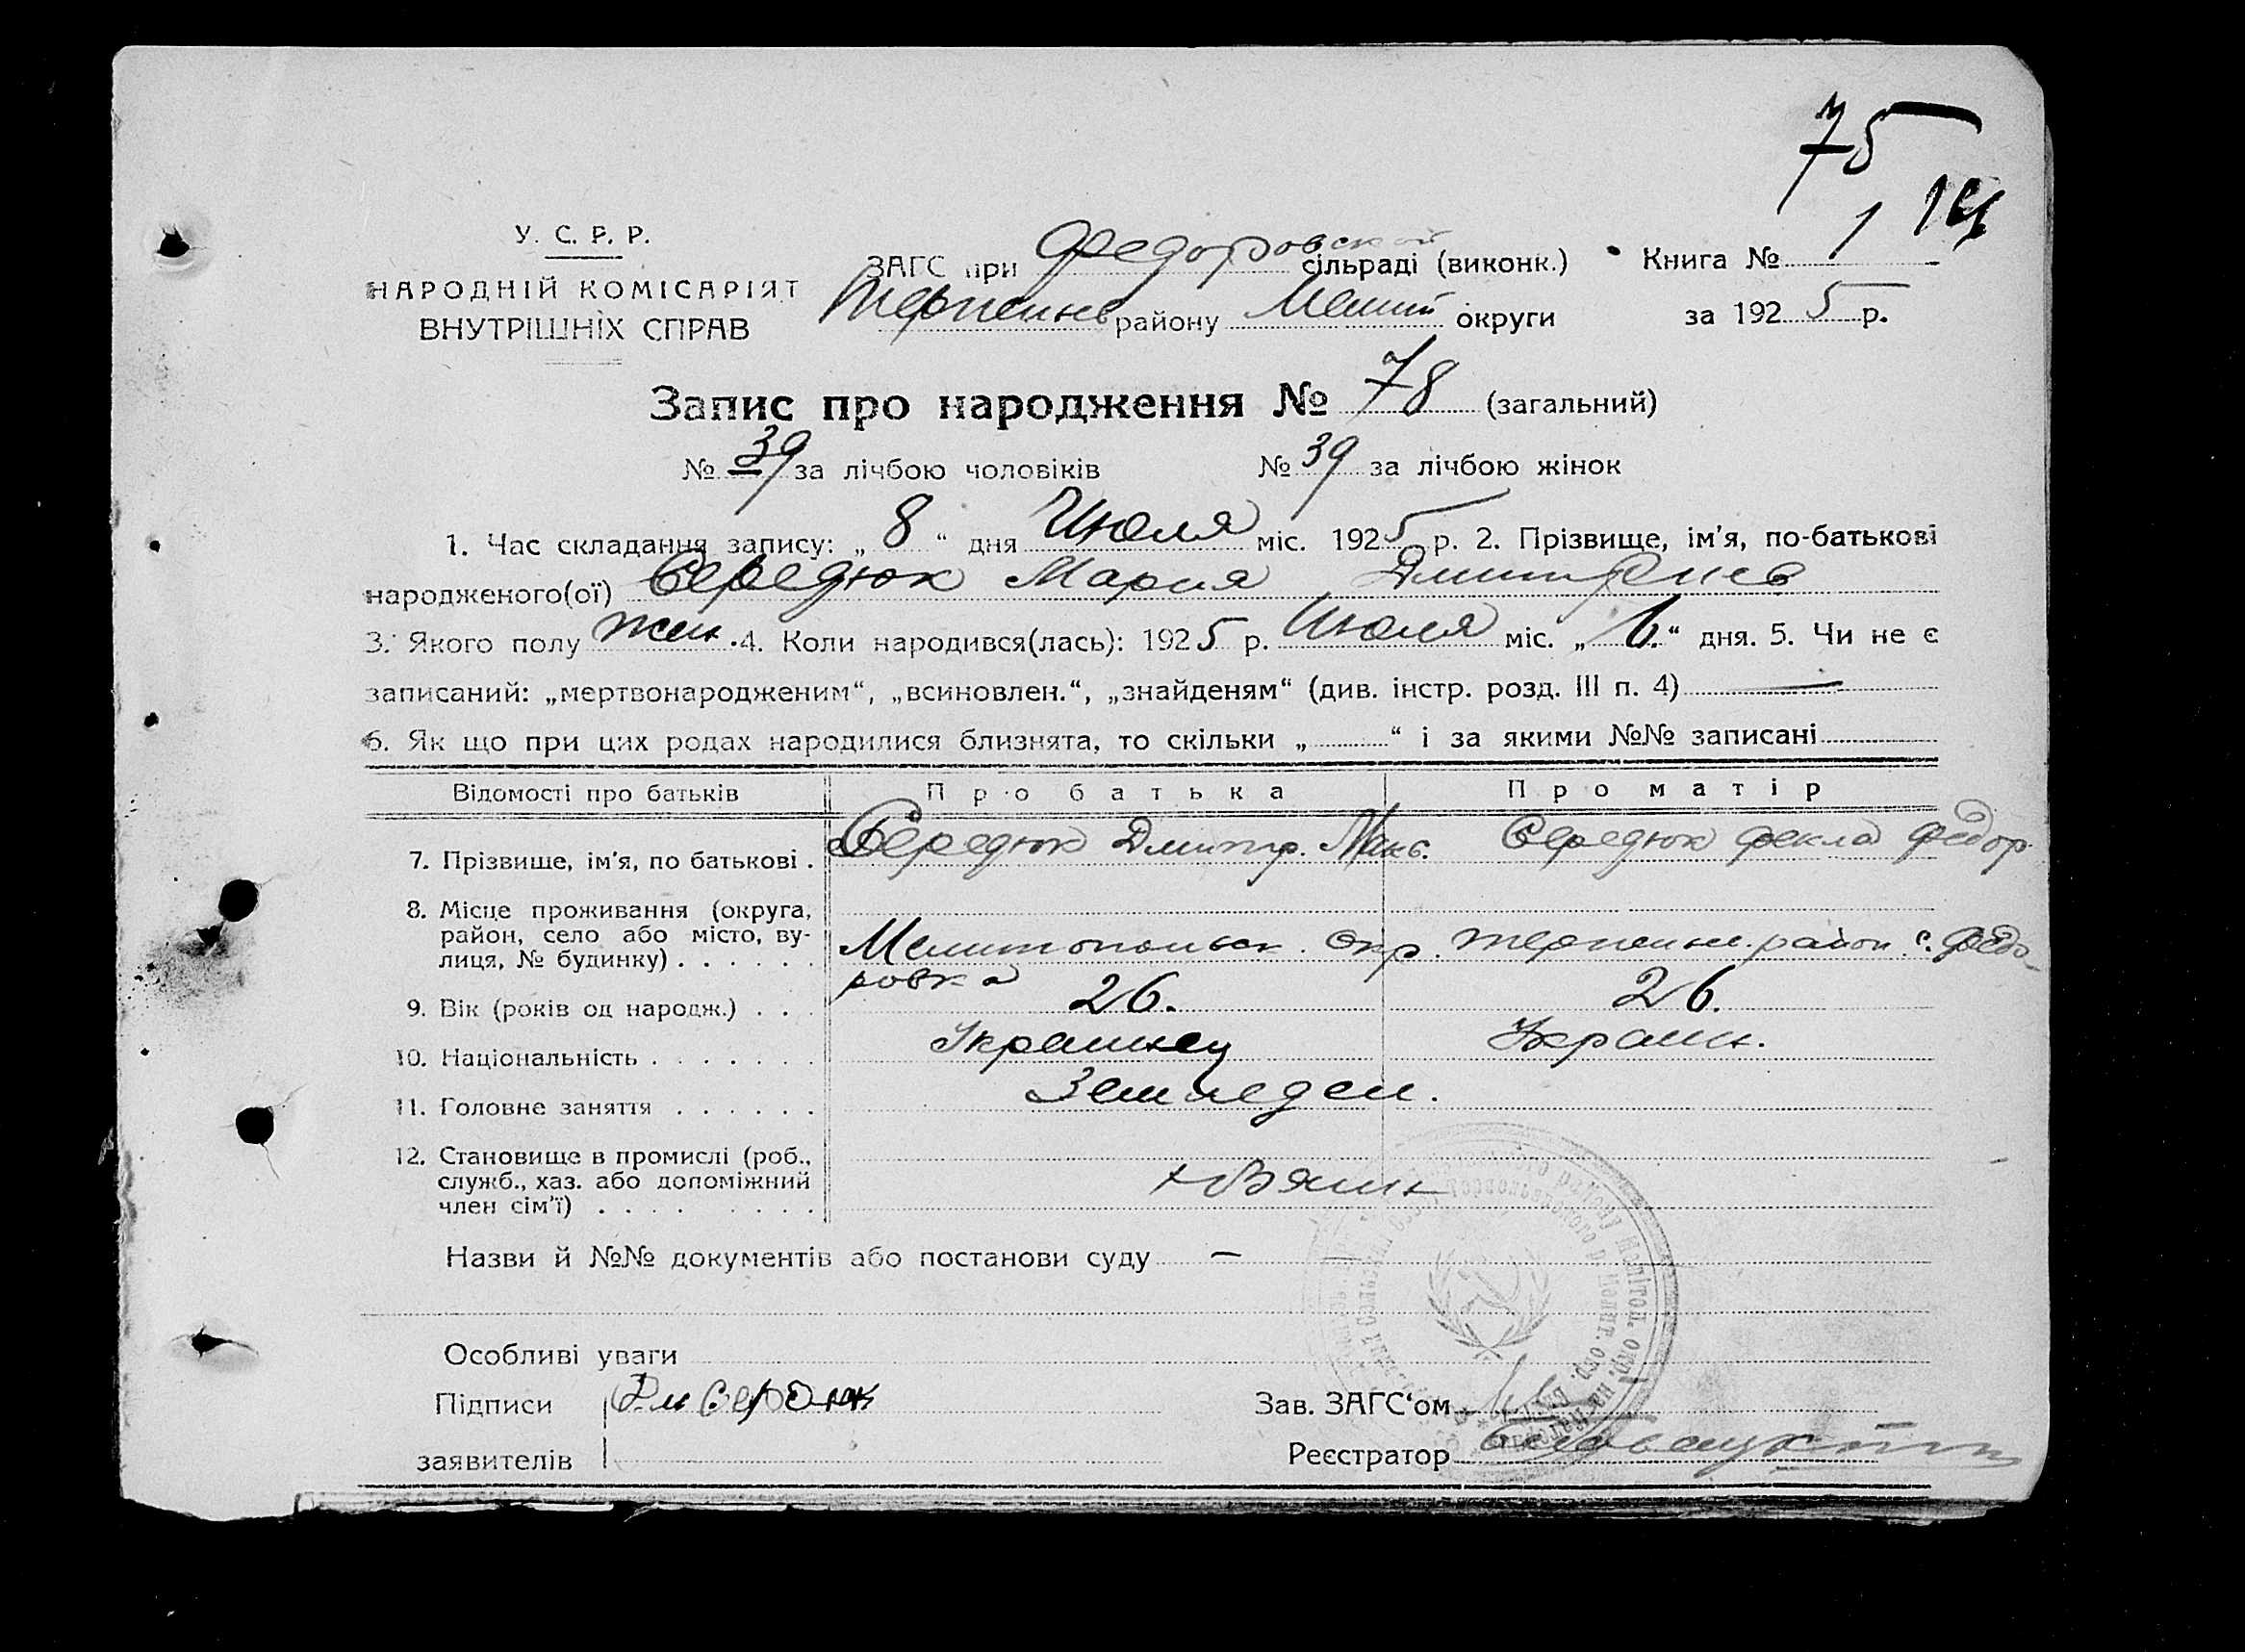 75
14
У. С. Р. Р.
НАРОДНІЙ КОМІСАРІЯТ
ВНУТРІШНІХ СПРАВ
ЗАГС при Федоровской сільраді (виконк.) Книга № 1
Терпеньев району Мелит округи за 1925 р.
Запис про народження № 78 (загальний)
№ 39 за лічбою чоловіків № 39 за лічбою жінок
1. Час складання запису: „ 8 “ дня Июля міс. 1925 р. 2. Прізвище, ім'я, по-батькові
народженого(ої) Середюк Мария Дмитриев
3. Якого полу жен. 4. Коли народився(лась): 1925 р. Июля міс. „ 6. “ дня. 5. Чи не є
записаний: „мертвонародженим“, „всиновлен.“, „знайденям“ (див. інстр. розд. III п. 4) —
6. Як що при цих родах народилися близнята, то скільки „ “ і за якими №№ записані
Відомості про батьків Про батька Про матір
7. Прізвище, ім'я, по батькові . Середюк Дмитр. Середюк Фекла Федор
8. Місце проживання (округа,
район, село або місто, ву-
лиця, № будинку) . . . . . . Мелитопольск. Окр. Терпеньев. район. с. Федо-
ровка
9. Вік (років од народж.) . . . 26. 26.
10. Національність . . . . . . . Украинец Украин.
11. Головне заняття . . . . . . Земледел.
12. Становище в промислі (роб.,
служб., хаз. або допоміжний
член сім'ї) . . . . . . . . хозяин
Назви й №№ документів або постанови суду —
Особливі уваги
Підписи
Зав. ЗАГС‘ом
заявителів
Реєстратор